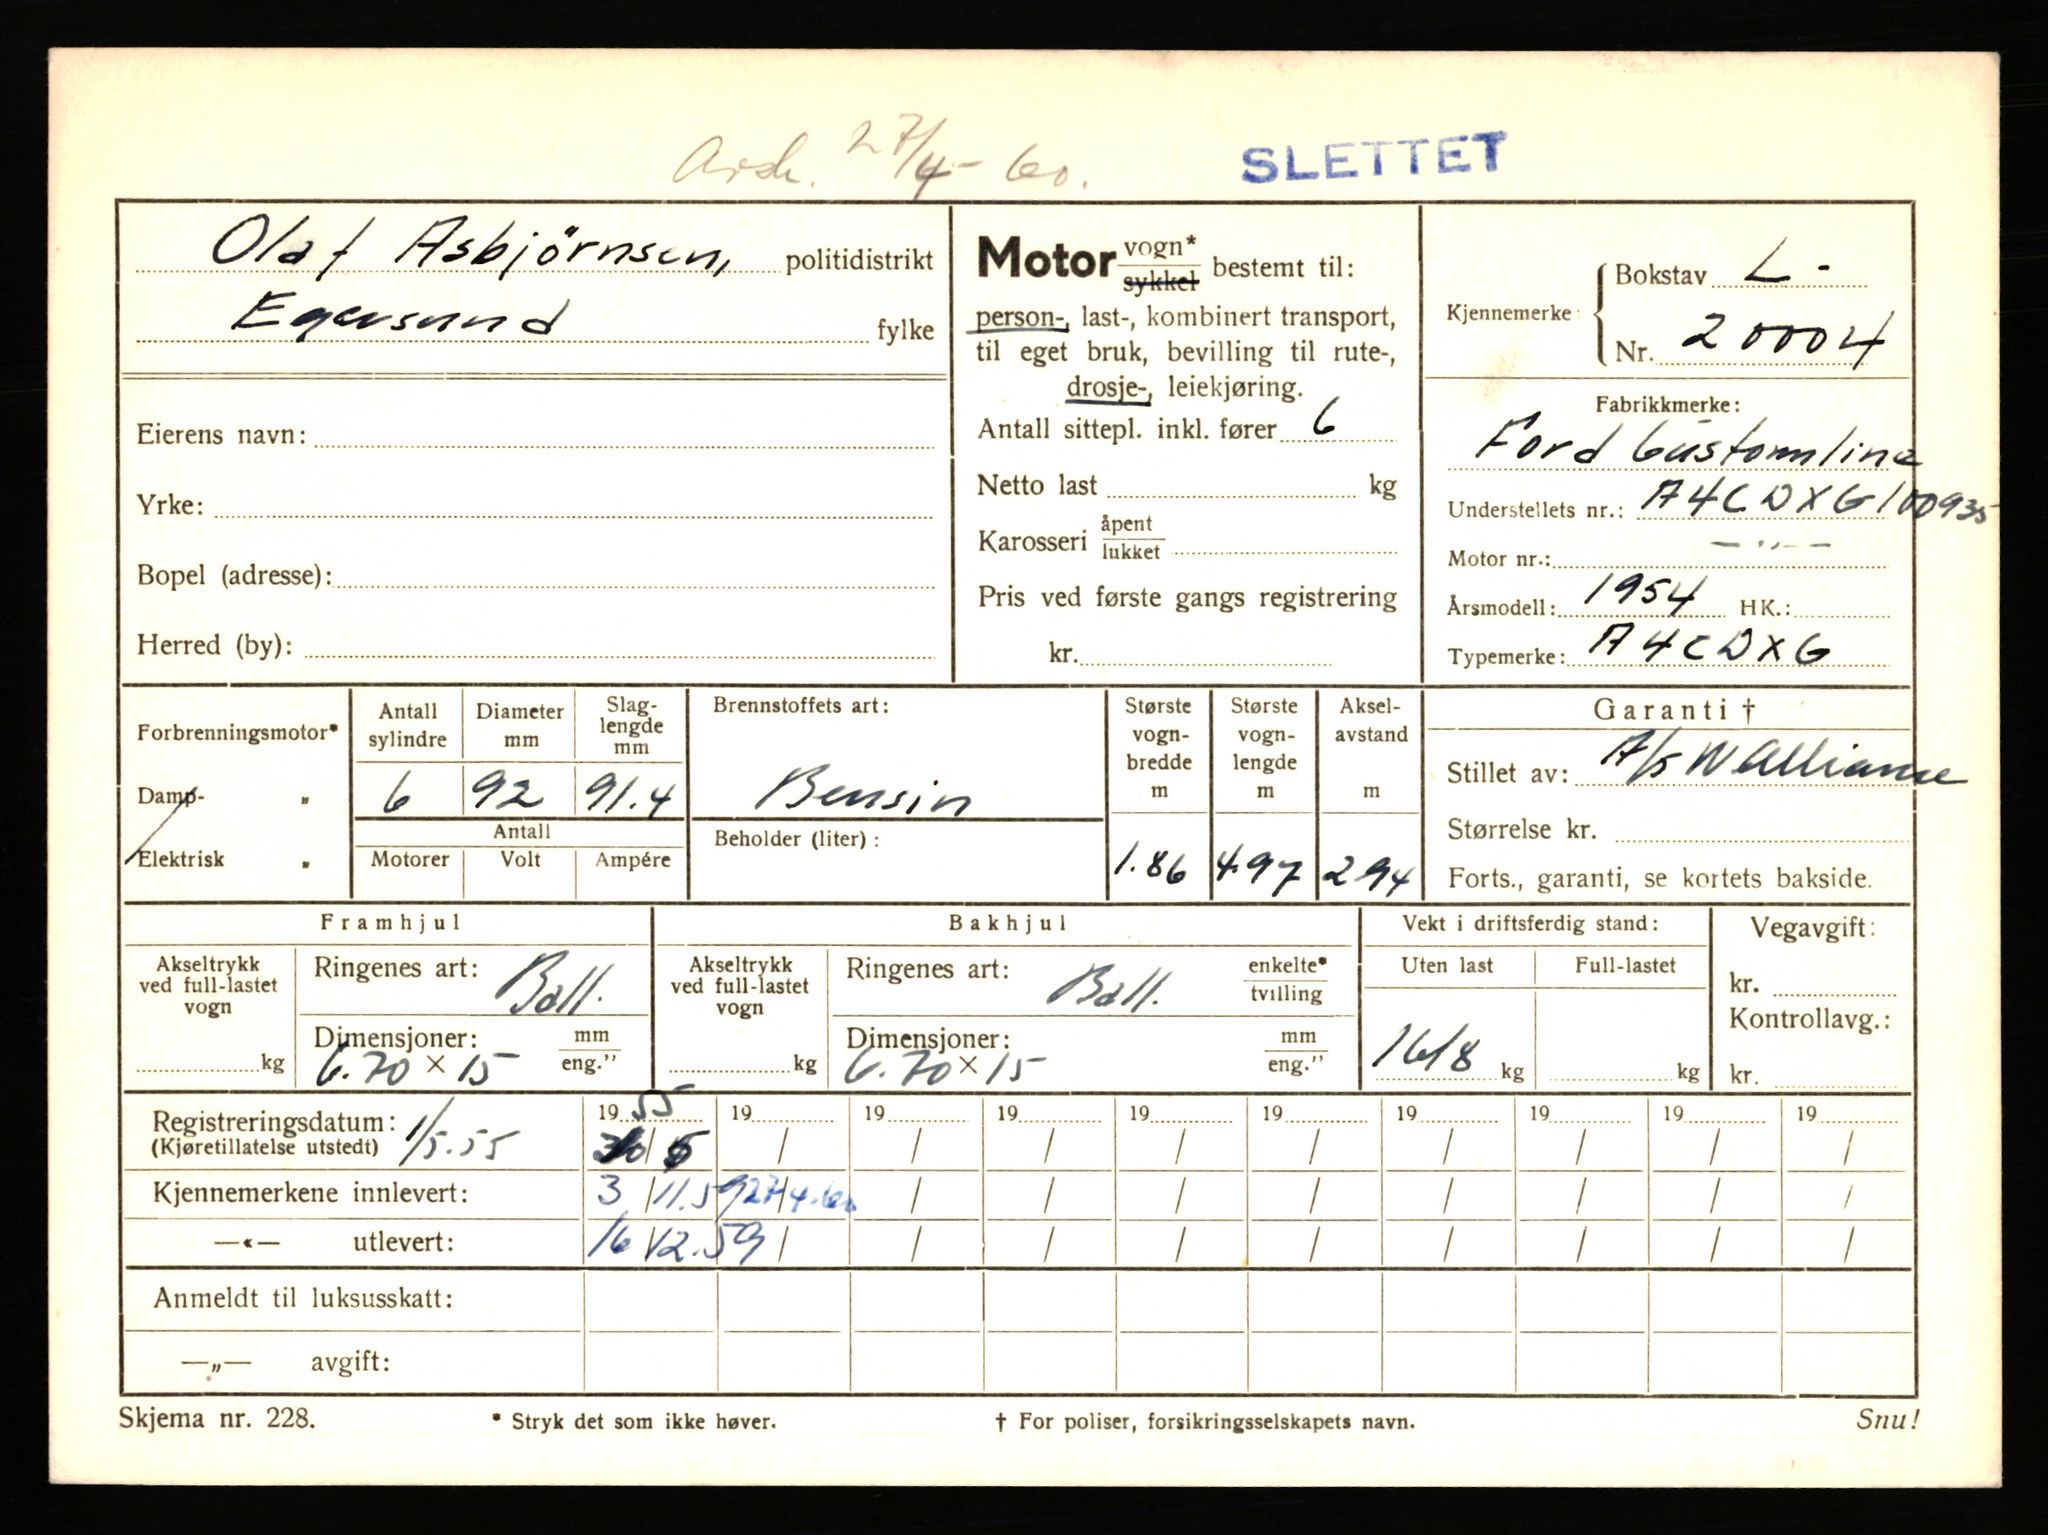 Arch. 27/4-60.
SLETTET
Olaf Asbjörnsen, politidistrikt
Egersund fylke
Eierens navn:
Yrke:
Bopel (adresse):
Herred (by):
Motor vogn* sykkel bestemt til:
person-, last-, kombinert transport,
til eget bruk, bevilling til rute-,
drosje-, leiekjøring.
Antall sittepl. inkl. fører 6
Netto last kg
Karosseri åpent lukket
Pris ved første gangs registrering
kr.
Kjennemerke: Bokstav L-
Nr. 20004
Fabrikkmerke:
Ford Customline
Understellets nr.: A4CDXG100935
Motor nr.: —„—
Årsmodell: 1954 HK.:
Typemerke: A4CDXG
Forbrenningsmotor*
Damp- „
Elektrisk „
Antall sylindre Diameter mm Slag-lengde mm
6 92 91.4
Antall
Motorer Volt Ampére
Brennstoffets art:
Bensin
Beholder (liter):
Største vogn-bredde m
1.86
Største vogn-lengde m
4.97
Aksel-avstand m
294
Garanti †
Stillet av: A/S
Størrelse kr.
Forts., garanti, se kortets bakside.
Framhjul
Akseltrykk ved full-lastet vogn
kg
Ringenes art: Ball.
Dimensjoner: mm eng."
6.70 × 15
Bakhjul
Akseltrykk ved full-lastet vogn
kg
Ringenes art: Ball. enkelte* tvilling
Dimensjoner: mm eng."
6.70 × 15
Vekt i driftsferdig stand:
Uten last Full-lastet
1618 kg kg
Vegavgift:
kr.
Kontrollavg.:
kr.
Registreringsdatum: 1/5.55 19 55 19 19 19 19 19 19 19 19 19
(Kjøretillatelse utstedt) / / / / / / / / / /
Kjennemerkene innlevert: 3/11.59 27/4.60 / / / / / / / /
—«— utlevert: 16/12.59 / / / / / / / / /
Anmeldt til luksusskatt:
—„— avgift:
Skjema nr. 228. * Stryk det som ikke høver. † For poliser, forsikringsselskapets navn. Snu!